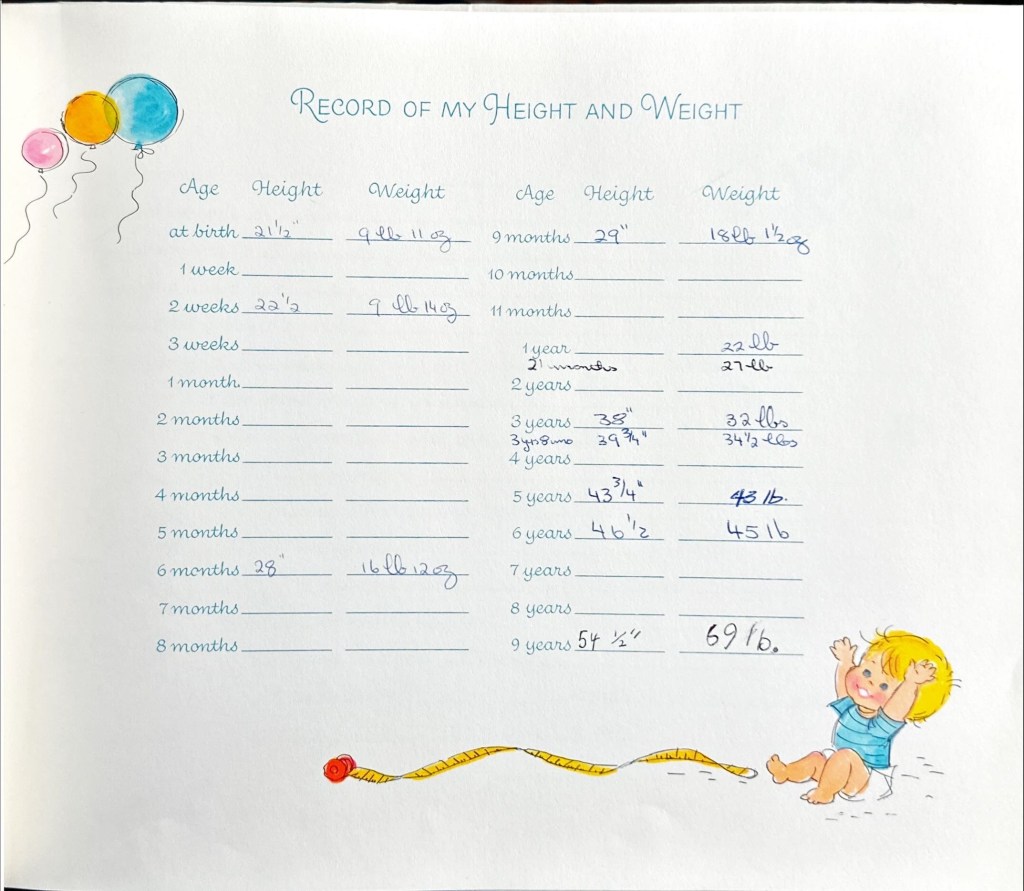 RECORD OF MY HEIGHT AND WEIGHT
Age Height Weight
at birth 21 1/2" 9 lb 11 oz
1 week
2 weeks 22 1/2 9 lb 14 oz
3 weeks
1 month
2 months
3 months
4 months
5 months
6 months 28" 16 lb 12 oz
7 months
8 months
Age Height Weight
9 months 29" 18 lb 1 1/2 oz
10 months
11 months
1 year 22 lb
21 months 27 lb
2 years
3 years 38" 32 lbs
3 yrs 8 mo 39 3/4" 34 1/2 lbs
4 years
5 years 43 3/4" 43 lb.
6 years 46 1/2 45 lb
7 years
8 years
9 years 54 1/2" 69 lb.